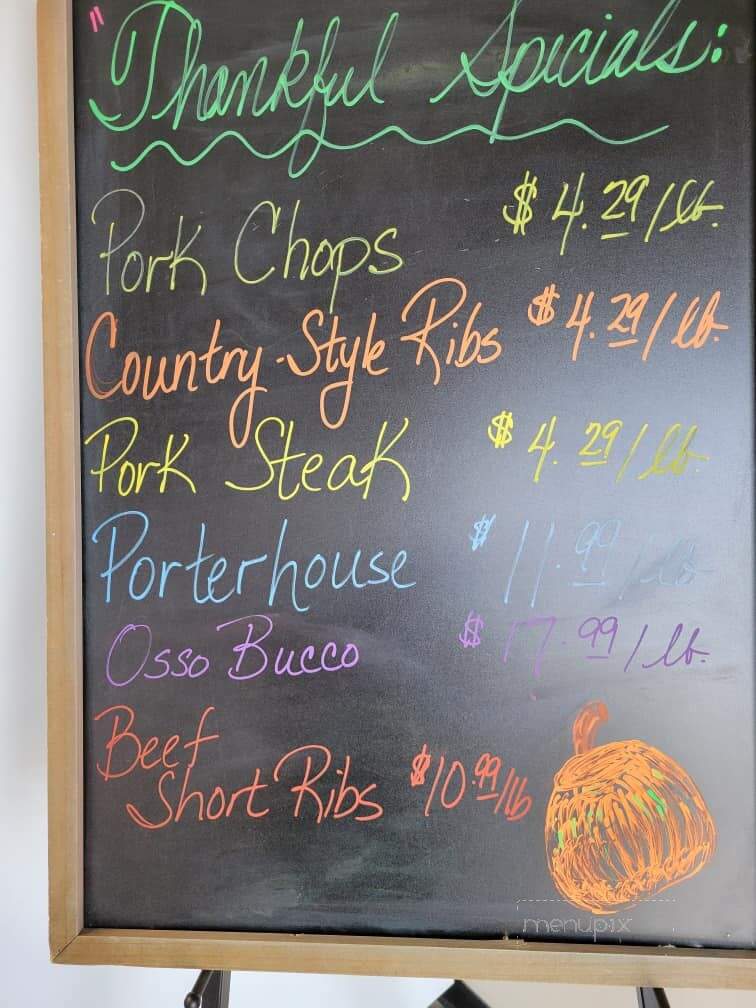 "Thankful Specials:
Pork Chops $4.29/lb.
Country-Style Ribs $4.29/lb.
Pork Steak $4.29/lb.
Porterhouse $11.99/lb.
Osso Bucco $17.99/lb.
Beef
Short Ribs $10.99/lb
menupix